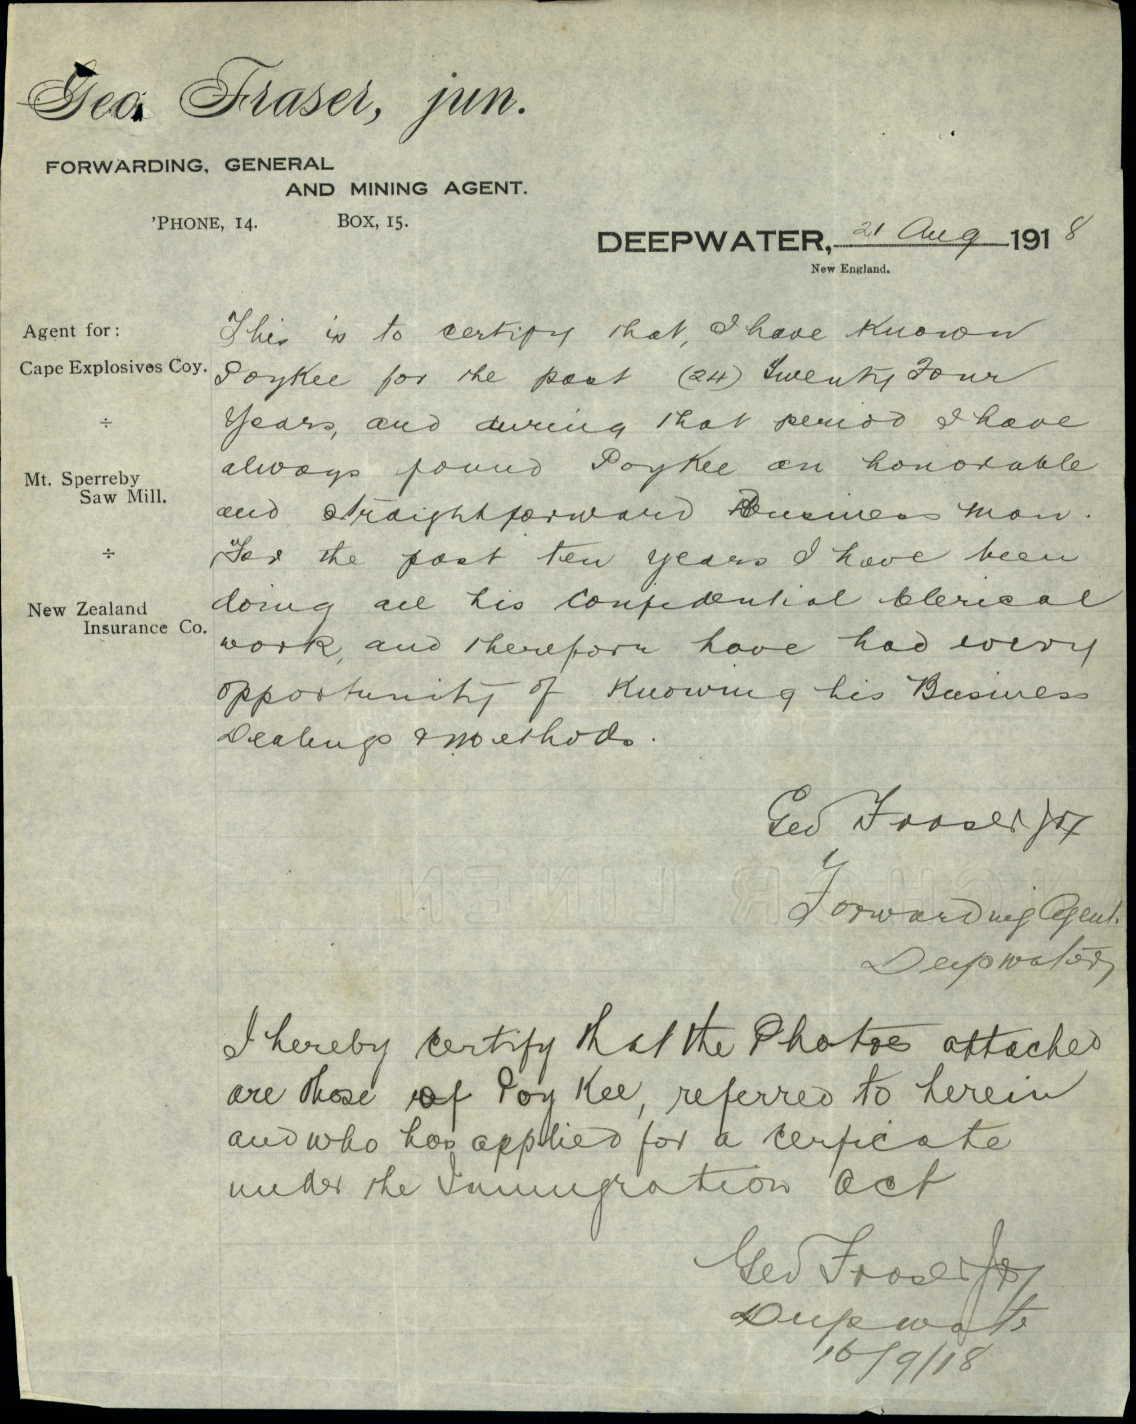 Geo. Fraser, jun.
FORWARDING, GENERAL
AND MINING AGENT.
'PHONE, 14. BOX, 15.
DEEPWATER, 21 Aug 1918
New England.
Agent for:
Cape Explosives Coy.
÷
Mt. Sperreby
Saw Mill.
÷
New Zealand
Insurance Co.
This is to certify that, I have Known
PoyKee for the past (24) Twenty Four
Years, and during that period I have
always found PoyKee an honorable
and straightforward Business man.
For the past ten years I have been
doing all his Confidential Clerical
work, and therefore have had every
opportunity of Knowing his Business
Dealings & methods.
Geo Fraser Jr
Forwarding Agent.
Deepwater
I hereby certify that the Photos attached
are those of Poy Kee, referred to herein
and who has applied for a cerficate
under the Immigration Act
Geo Fraser Jr
Deepwater
16/9/18